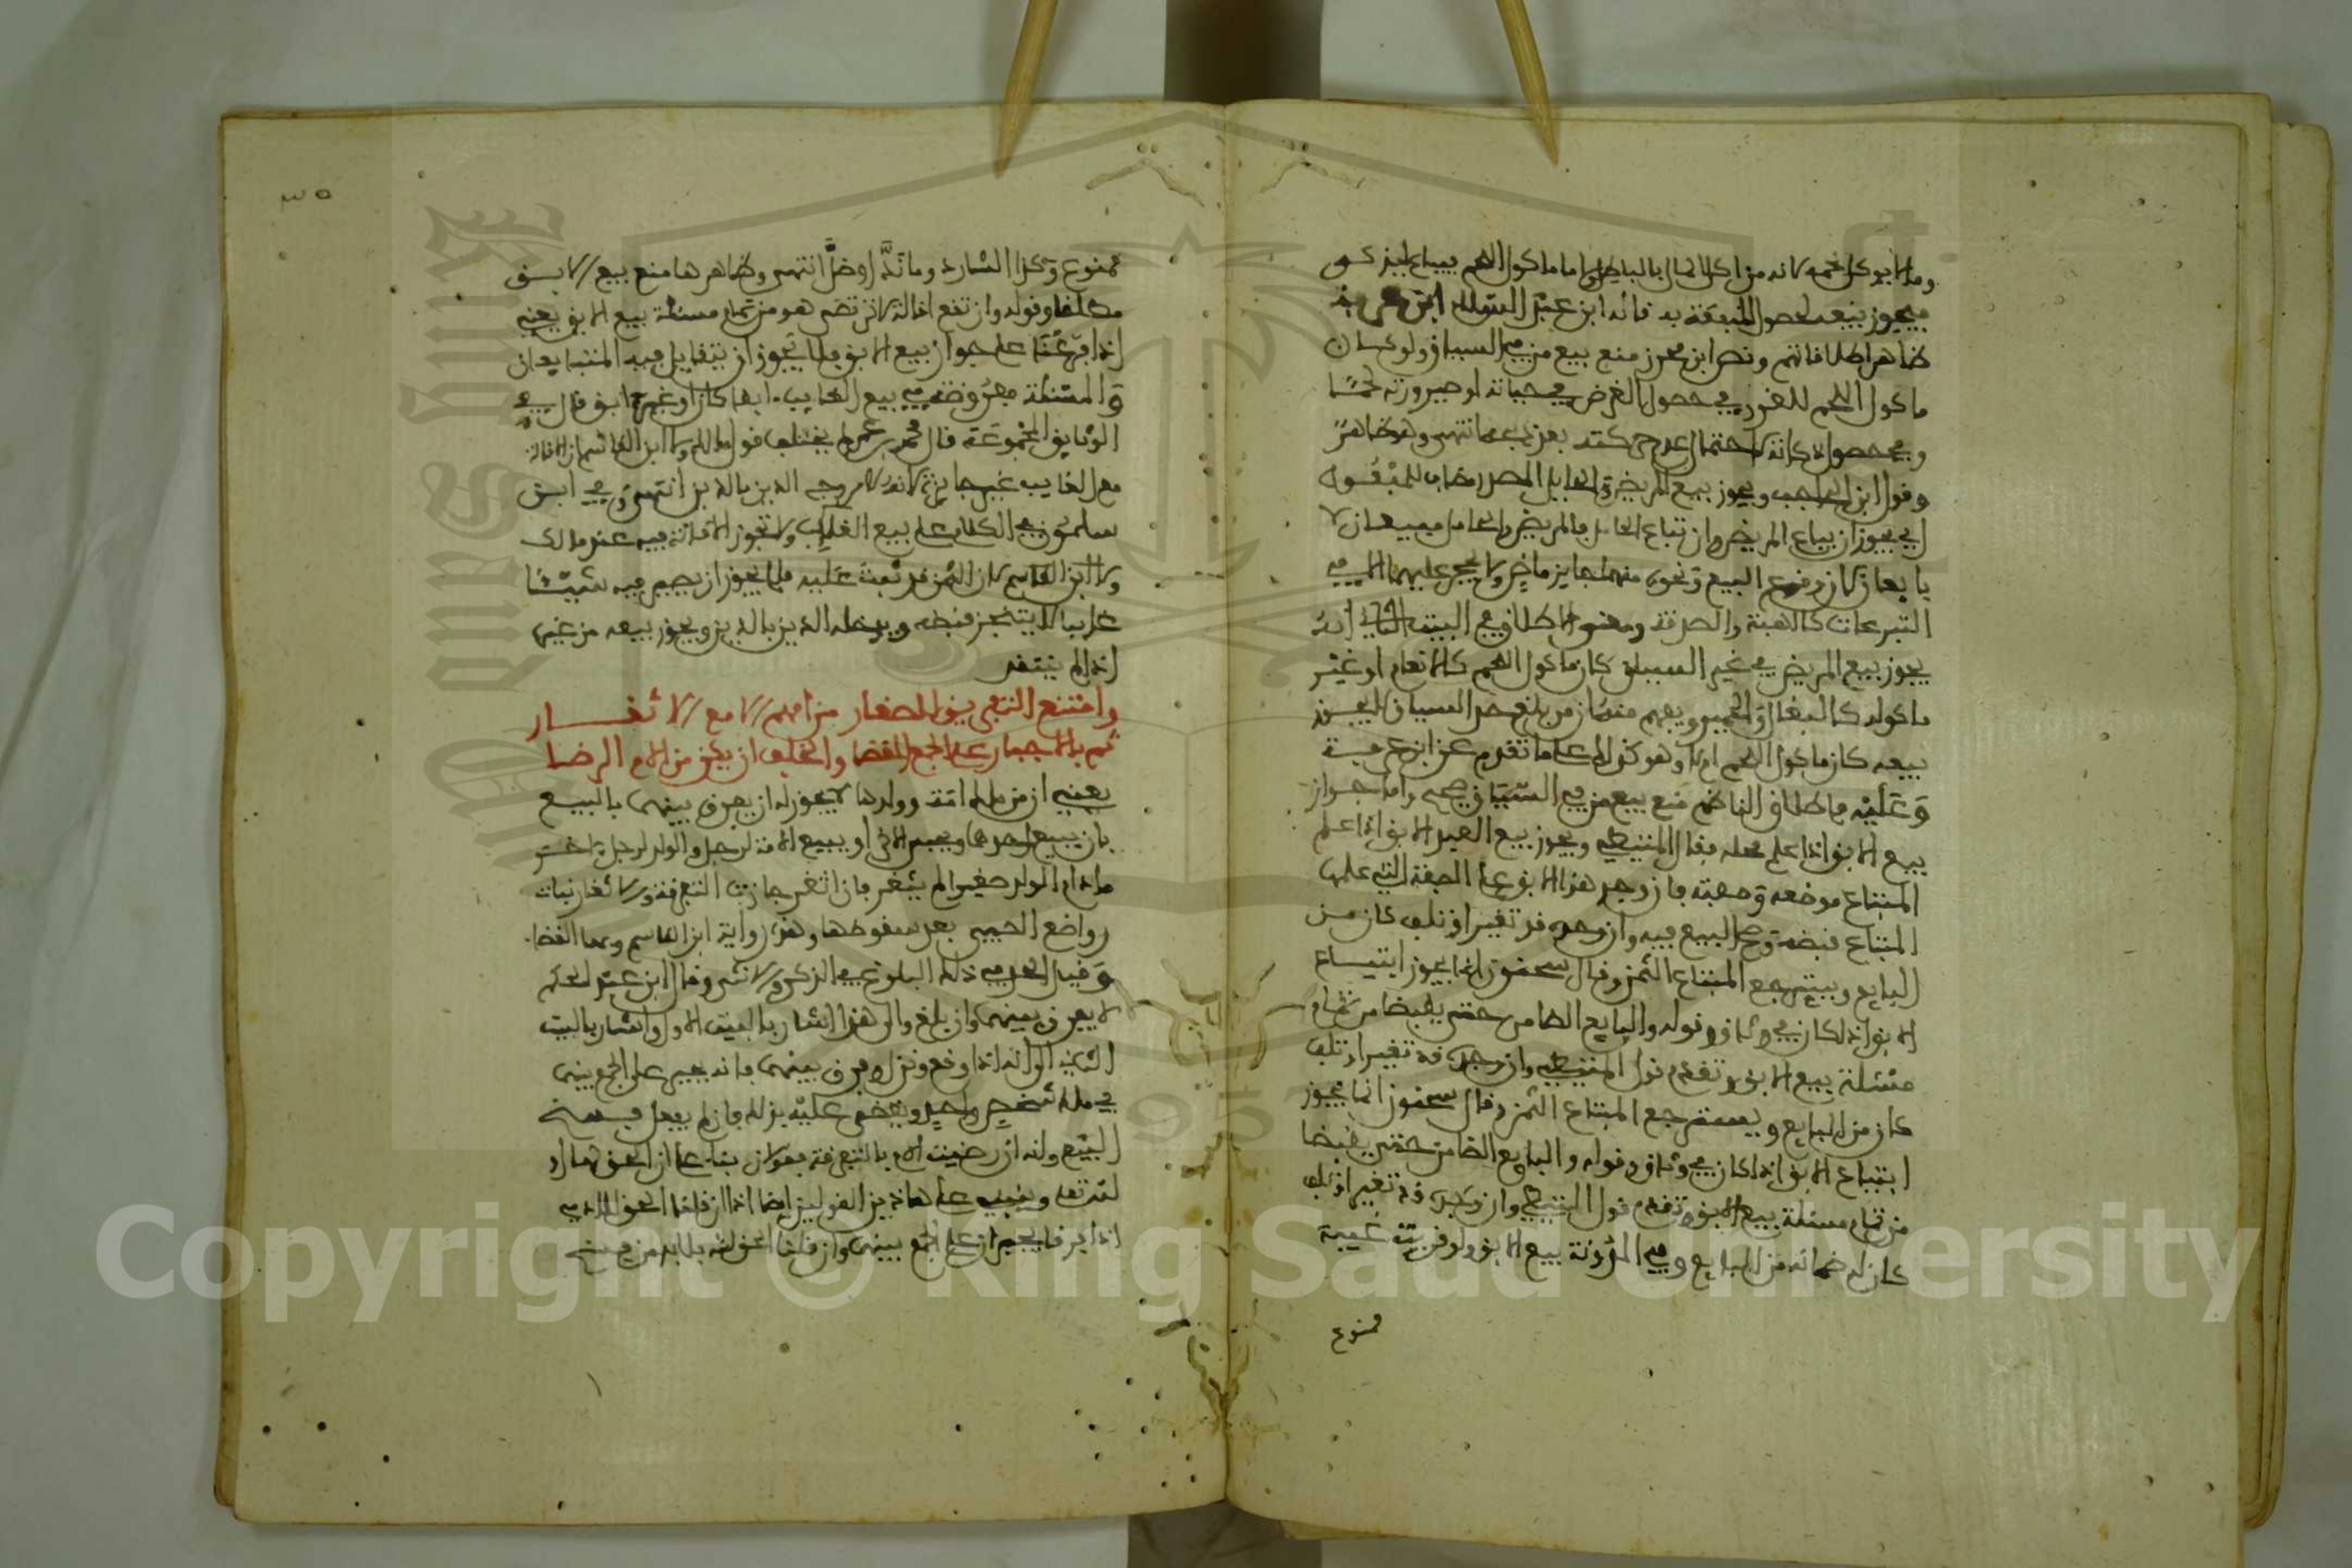 وما لا يوكل لحمه لانه من اكل المال بالباطل واما ماكول اللحم فيباع ليذكى
فيجوز بيعه لحصول المنفعة به قاله ابن عبد السلام ابن عرفة
ظاهر اطلاقاتهم ونص ابن محرز منع بيع من في السياق ولو كان
ماكول اللحم للغرر في حصول الغرض في حياته او صيرورته لحما
وفي حصول ذكاته لاحتمال عدم حركته بعد ذبحه انتهى وهو ظاهر
وقول ابن الحاجب ويجوز بيع المريض والحامل المصدر مضاف للمفعول
اي يجوز ان يباع المريض وان تباع الحامل والمريض والحامل مبيعان لا
بايعان لان دفع البيع ونحوه منهما جايز ماض ولا يحجر عليهما الا في
التبرعات كالهبة والصدقة ومعنى الاطلاق في البيت الثاني انه
يجوز بيع المريض في غير السياق كان ماكول اللحم كالانعام او غير
ماكوله كالبغال والحمير ويفهم منه ان من بلغ حد السياق لا يجوز
بيعه كان ماكول اللحم ام لا وهو كذلك على ما تقدم عن ابن عرفة
وعليه فاطلاق الناظم منع بيع من في السياق صحيح واما جواز
بيع الابق اذا علم محله فقال المتيطي ويجوز بيع العبد الابق اذا علم
المبتاع موضعه وصفته فان وجد هذا الابق على الصفة التي علمها
المبتاع قبضه وصح البيع فيه وان وجده قد تغير او تلف كان من
البايع ويسترجع المبتاع الثمن وقال سحنون انما يجوز ابتياع
الابق اذا كان في وثاق وقوله والبايع الضامن حتى يقبضا من تمام
مسئلة بيع الابق وتقدم قول المتيطي وان وجده قد تغير او تلف
كان من البايع ويسترجع المبتاع الثمن وقال سحنون انما يجوز
ابتياع الابق اذا كان في وثاق وقوله والبايع الضامن حتى يقبضا
من تمام مسئلة بيع الابق وتقدم قول المتيطي وان وجده قد تغير او تلف
كان له ضمانه من البايع وفي المدونة بيع الابق ولو قربت غيبته
ممنوع
٣٥
ممنوع وكذا الشارد وما ند او ضل انتهى وظاهرها منع بيع الابق
مطلقا وقوله وان تقع اقالة لا ترتضى هو من تمام مسئلة بيع الابق يعني
اذا فرعنا على جواز بيع الابق فلا يجوز ان يتقايل فيه المتبايعان
والمسئلة مفروضة في بيع الغايب ابقا كان او غير ابق قال في
الوثايق المجموعة قال محمد بن عمر لم يختلف قول مالك ولا ابن القاسم ان الاقالة
مع الغايب غير جايزة لانه لا من وجه الدين بالدين انتهى وفي ابن
سلمون في الكلام على بيع الغايب ولا تجوز الاقالة فيه عند مالك
ولا ابن القاسم لان الثمن قد ثبت عليه فلا يجوز ان يصير فيه شيئا
غايبا لا يتنجز قبضه ويدخله الدين بالدين ويجوز بيعه من غيره
اذا لم ينتقد
وامتنع التفريق للصغار من امهم الا مع الاثغار
ثم بالاجبار على الجمع القضا والخلف ان يكن من الام الرضا
يعني ان من ملك امة وولدها لا يجوز له ان يفرق بينهما بالبيع
بان يبيع احدهما ويحبس الاخر او يبيع الامة لرجل والولد لرجل اخر
ما دام الولد صغيرا لم يثغر فان اثغر جازت التفرقة والاثغار نبات
رواضع الصبي بعد سقوطها وهذه رواية ابن القاسم وبها القضا
وقيل الحد في ذلك البلوغ في الذكر والانثى وقال ابن عبد الحكم
لا يفرق بينهما وان بلغ والى هذا اشار بالبيت الاول واشار بالبيت
الثاني الى انه اذا وقع ونزل وفرق بينهما فانه يجبر على الجمع بينهما
في ملك شخص واحد ويقضى عليه بذلك فان لم يفعل فسخ
البيع وانه ان رضيت الام بالتفرقة فقولان بناء على ان الحق لها او
لله تعالى وينبني على هاذين القولين ايضا اذا ان قلنا الحق للام
اذا فرقا يجبران على الجمع بينهما وان قلنا الحق لله فلا بد من فسخ
Copyright © King Saud University